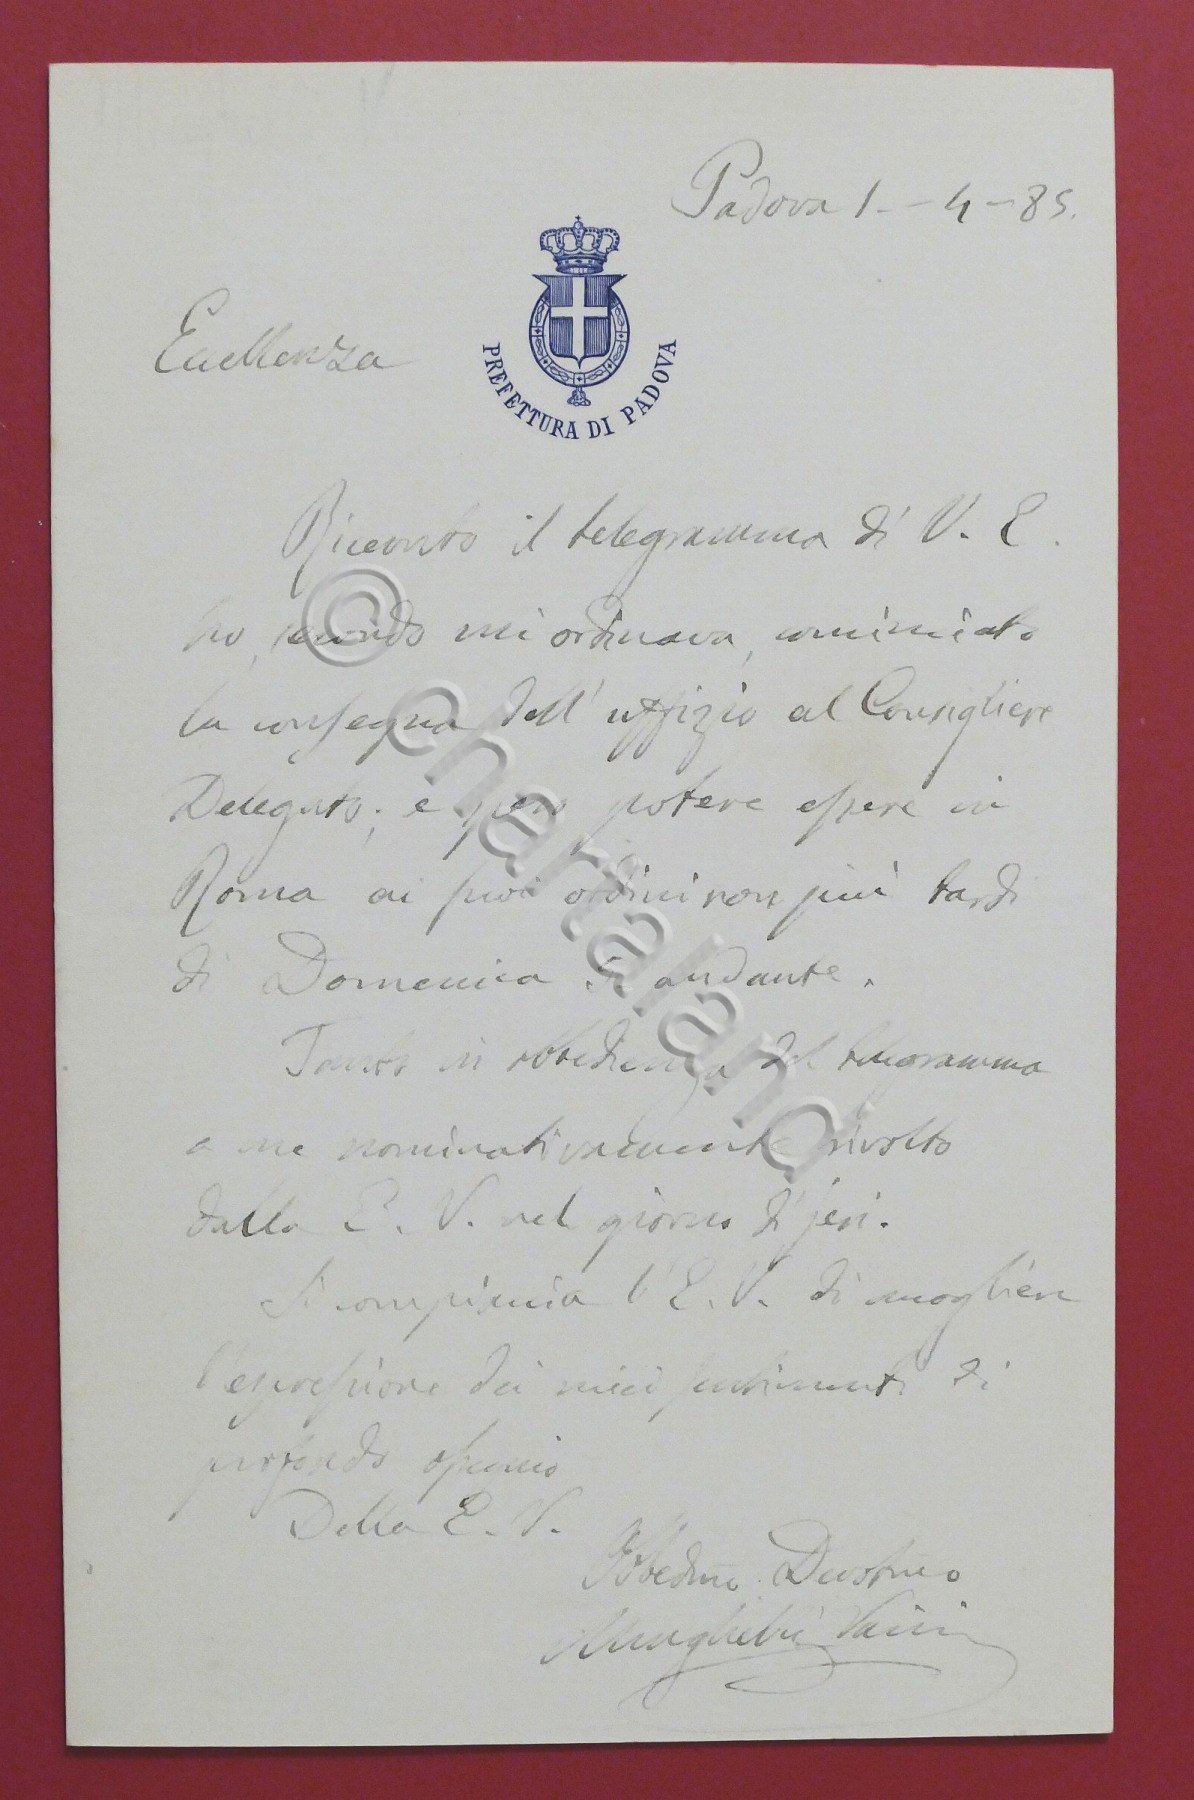 Padova 1.-4-85.
PREFETTURA DI PADOVA
Eccellenza
Ricevuto il telegramma di V. E.
ho, secondo mi ordinava, cominciato
la consegna dell'uffizio al Consigliere
Delegato; e spero potere essere in
Roma ai suoi ordini non più tardi
di Domenica 5 andante.
Tanto in obbedienza del telegramma
a me nominativamente rivolto
dalla E. V. nel giorno d'jeri.
Si compiaccia l'E. V. di accogliere
l'espressione dei miei sentimenti di
profondo ossequio
Della E. V.
Obbedmo Devotmo
© chartaland